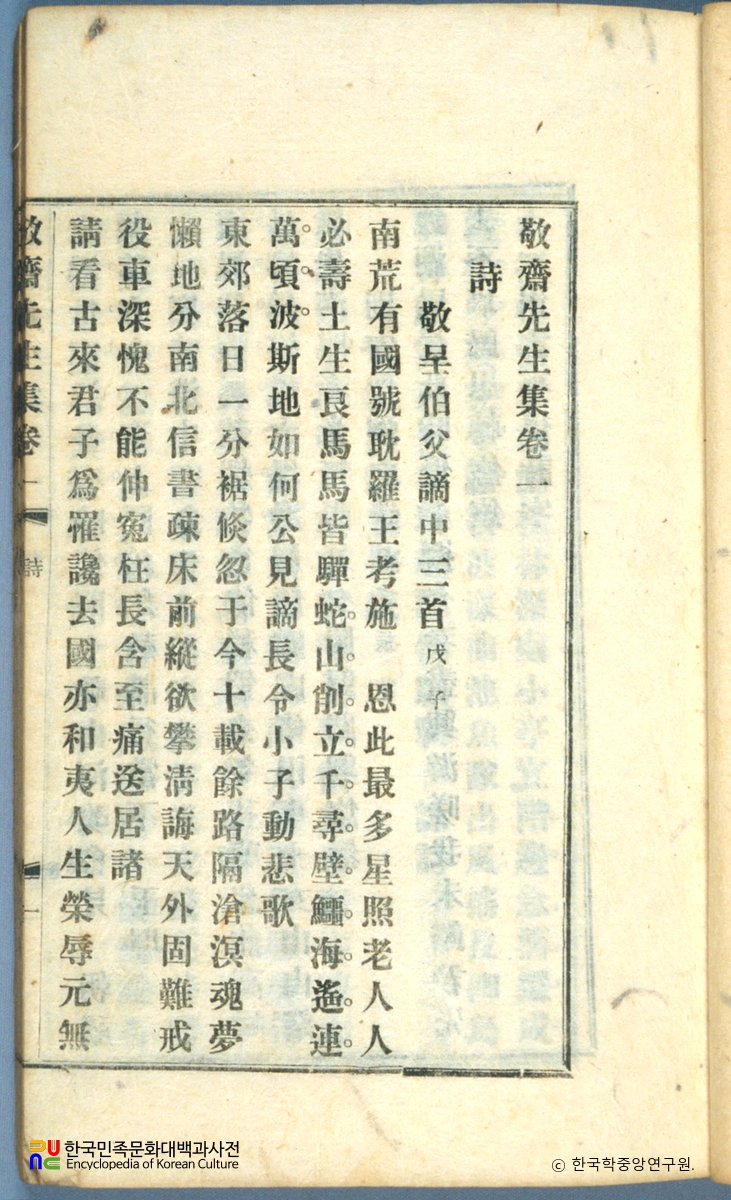 敬齋先生集卷一
詩
敬呈伯父謫中三首 戊子
南荒有國號耽羅王考施 恩此最多星照老人人
必壽土生良馬馬皆驒蛇山削立千尋壁鱷海遙連
萬頃波斯地如何公見謫長令小子動悲歌
東郊落日一分裾倐忽于今十載餘路隔滄溟魂夢
懶地分南北信書疎床前縱欲攀淸誨天外固難戒
役車深愧不能伸寃枉長含至痛送居諸
請看古來君子爲罹讒去國亦和夷人生榮辱元無
敬齋先生集卷一 詩 一
한국민족문화대백과사전
Encyclopedia of Korean Culture
© 한국학중앙연구원.